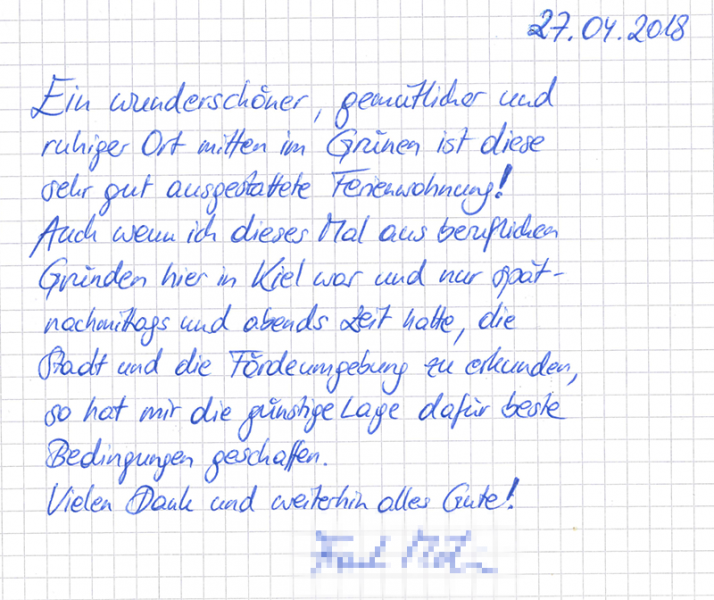 27.04.2018
Ein wunderschöner, gemütlicher und
ruhiger Ort mitten im Grünen ist diese
sehr gut ausgestattete Ferienwohnung!
Auch wenn ich dieses Mal aus beruflichen
Gründen hier in Kiel war und nur spät-
nachmittags und abends Zeit hatte, die
Stadt und die Fördeumgebung zu erkunden,
so hat mir die günstige Lage dafür beste
Bedingungen geschaffen.
Vielen Dank und weiterhin alles Gute!